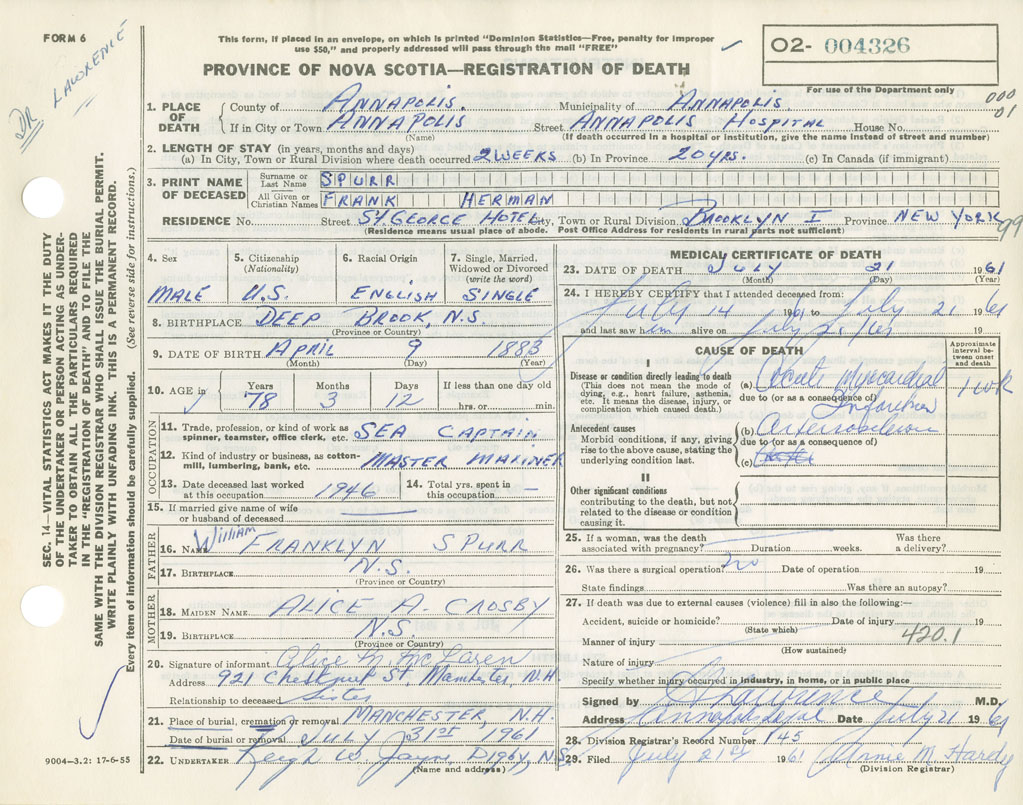 FORM 6
DR LAWRENCE
This form, if placed in an envelope, on which is printed "Dominion Statistics—Free, penalty for improper
use $50," and properly addressed will pass through the mail "FREE"
02- 004326
For use of the Department only
000
01
PROVINCE OF NOVA SCOTIA—REGISTRATION OF DEATH
1. PLACE OF DEATH
County of ANNAPOLIS. Municipality of ANNAPOLIS
If in City or Town ANNAPOLIS Street ANNAPOLIS HOSPITAL House No.
(Name) (If death occurred in a hospital or institution, give the name instead of street and number)
2. LENGTH OF STAY (in years, months and days)
(a) In City, Town or Rural Division where death occurred 2 WEEKS (b) In Province 20 YRS. (c) In Canada (if immigrant)
3. PRINT NAME OF DECEASED
Surname or Last Name SPURR
All Given or Christian Names FRANK HERMAN
RESIDENCE No. Street ST GEORGE HOTEL City, Town or Rural Division BROOKLYN I Province NEW YORK 99
(Residence means usual place of abode. Post Office Address for residents in rural parts not sufficient)
4. Sex
MALE
5. Citizenship
(Nationality)
U.S.
6. Racial Origin
ENGLISH
7. Single, Married,
Widowed or Divorced
(write the word)
SINGLE
8. BIRTHPLACE DEEP BROOK, N.S.
(Province or Country)
9. DATE OF BIRTH APRIL 9 1883
(Month) (Day) (Year)
10. AGE in
Years Months Days If less than one day old
78 3 12 hrs. or min.
OCCUPATION
11. Trade, profession, or kind of work as
spinner, teamster, office clerk, etc. SEA CAPTAIN
12. Kind of industry or business, as cotton-
mill, lumbering, bank, etc. MASTER MARINER
13. Date deceased last worked
at this occupation 1946
14. Total yrs. spent in
this occupation –
15. If married give name of wife
or husband of deceased
FATHER
16. NAME William FRANKLYN SPURR
17. BIRTHPLACE N.S.
(Province or Country)
MOTHER
18. MAIDEN NAME ALICE A. CROSBY
19. BIRTHPLACE N.S.
(Province or Country)
20. Signature of informant Alice M. McLaren
Address 921 Chestnut St, Manchester, N.H.
Relationship to deceased Sister
21. Place of burial, cremation or removal MANCHESTER, N.H.
Date of burial or removal JULY 31ST 1961
22. UNDERTAKER W. Jayne, Digby, N.S.
(Name and address)
MEDICAL CERTIFICATE OF DEATH
23. DATE OF DEATH JULY 21 1961
(Month) (Day) (Year)
24. I HEREBY CERTIFY that I attended deceased from:
July 14 1961 to July 21 1961
and last saw him alive on July 21/61 19
CAUSE OF DEATH
Approximate interval be-
tween onset and death
I
Disease or condition directly leading to death
(This does not mean the mode of
dying, e.g., heart failure, asthenia,
etc. It means the disease, injury, or
complication which caused death.)
(a) Acute Myocardial 1 wk
due to (or as a consequence of)
Infarction
Antecedent causes
Morbid conditions, if any, giving
rise to the above cause, stating the
underlying condition last.
(b)
due to (or as a consequence of)
(c)
II
Other significant conditions
contributing to the death, but not
related to the disease or condition
causing it.
25. If a woman, was the death
associated with pregnancy? Duration weeks. Was there
a delivery?
26. Was there a surgical operation? no Date of operation 19
State findings Was there an autopsy?
27. If death was due to external causes (violence) fill in also the following:—
Accident, suicide or homicide? Date of injury 19
(State which)
Manner of injury 420.1
(How sustained)
Nature of injury
Specify whether injury occurred in industry, in home, or in public place
Signed by Lawrence M.D.
Address Annapolis Royal Date July 21 1961
28. Division Registrar's Record Number 145
29. Filed July 21st 1961 Annie M. Hardy
(Division Registrar)
SEC. 14—VITAL STATISTICS ACT MAKES IT THE DUTY
OF THE UNDERTAKER OR PERSON ACTING AS UNDER-
TAKER TO OBTAIN ALL THE PARTICULARS REQUIRED
IN THE "REGISTRATION OF DEATH" AND TO FILE THE
SAME WITH THE DIVISION REGISTRAR WHO SHALL ISSUE THE BURIAL PERMIT.
WRITE PLAINLY WITH UNFADING INK. THIS IS A PERMANENT RECORD.
Every item of information should be carefully supplied. (See reverse side for instructions.)
9004—3.2: 17-6-55